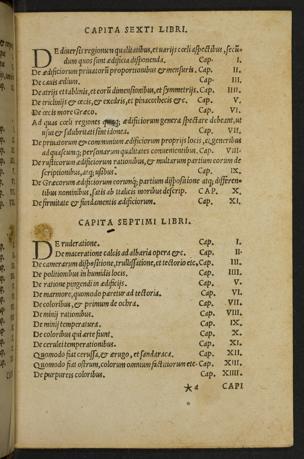 CAPITA SEXTI LIBRI.
De diuersis regionum qualitatibus, et uarijs cœli aspectibus, secũ-
dum quos sunt ædificia disponenda. Cap. I.
De ædificiorum priuatorũ proportionibus et mensuris. Cap. II.
De cauis ædium. Cap. III.
De atrijs et tablinis, et eorũ dimensionibus, et symmetrijs. Cap. IIII.
De triclinijs et œcis, et exedris, et pinacothecis &c. Cap. V.
De œcis more Græco. Cap. VI.
Ad quas cœli regiones quæq; ædificiorum genera spectare debeant, ut
usui et salubritati sint idonea. Cap. VII.
De priuatorum et communium ædificiorum proprijs locis, et generibus
ad quascumq; personarum qualitates conuenientibus. Cap. VIII.
De rusticorum ædificiorum rationibus, et multarum partium eorum de
scriptionibus, atq; usibus. Cap. IX.
De Græcorum ædificiorum eorumq; partium dispositione atq; differen-
tibus nominibus, satis ab italicis moribus discrep. CAP. X.
De firmitate et fundamentis ædificiorum. Cap. XI.
CAPITA SEPTIMI LIBRI.
De ruderatione. Cap. I.
De maceratione calcis ad albaria opera &c. Cap. II.
De camerarum dispositione, trullissatione, et tectorio &c. Cap. III.
De politionibus in humidis locis. Cap. IIII.
De ratione pingendi in ædificijs. Cap. V.
De marmore, quomodo paretur ad tectoria. Cap. VI.
De coloribus, et primum de ochra. Cap. VII.
De minij rationibus. Cap. VIII.
De minij temperatura. Cap. IX.
De coloribus qui arte fiunt. Cap. X.
De cerulei temperationibus. Cap. XI.
Quomodo fiat cerussa, et ærugo, et sandaraca. Cap. XII.
Quomodo fiat ostrum, colorum omnium factitiorum &c. Cap. XIII.
De purpureis coloribus. Cap. XIIII.
* a CAPI